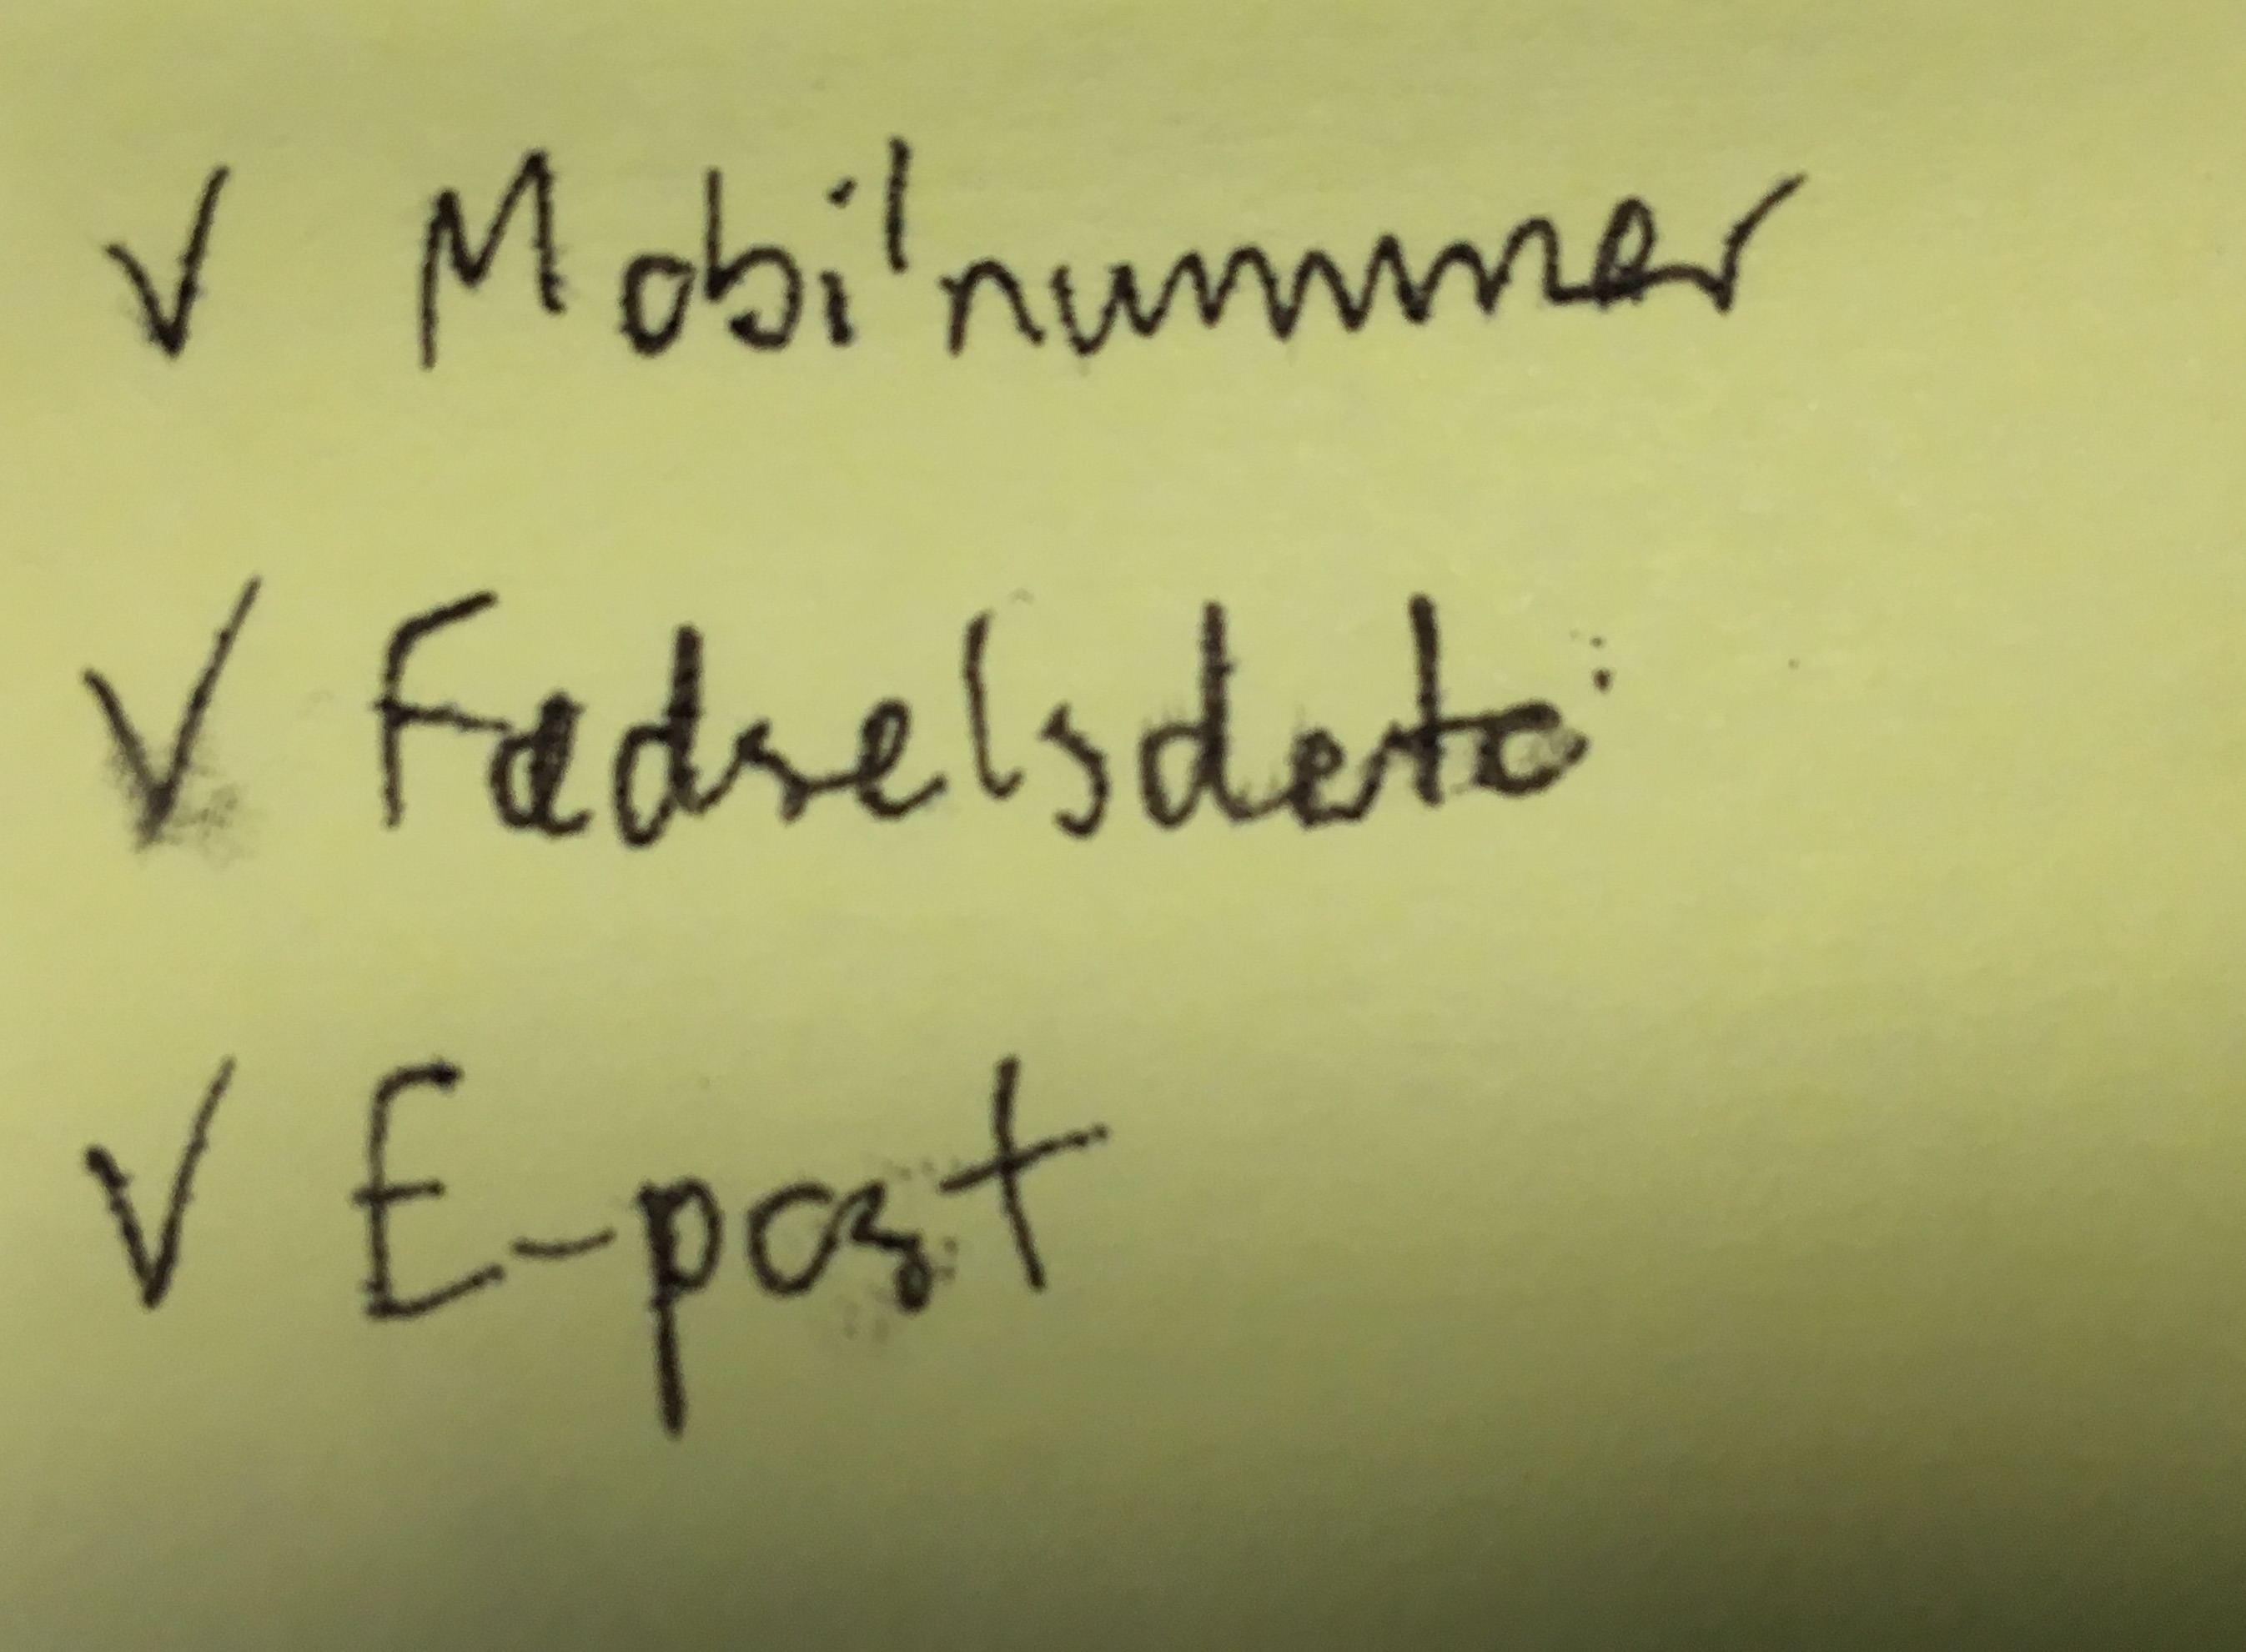 ✓ Mobilnummer
✓ Fødselsdato
✓ E-post